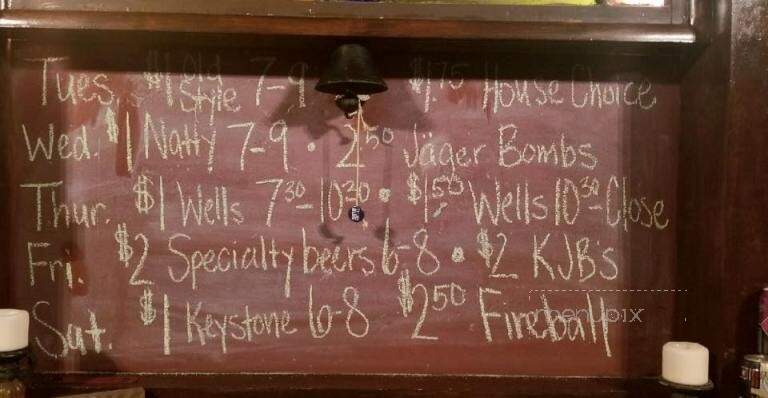 Tues. $1 Old Style 7-9 $1.75 House Choice
Wed. $1 Natty 7-9 • 2.50 Jäger Bombs
Thur. $1 Wells 730-1030 • $1.50 Wells 1030-Close
Fri. $2 Specialty beers 6-8 • $2 KJB's
Sat. $1 Keystone 6-8 $250 Fireball
menupix